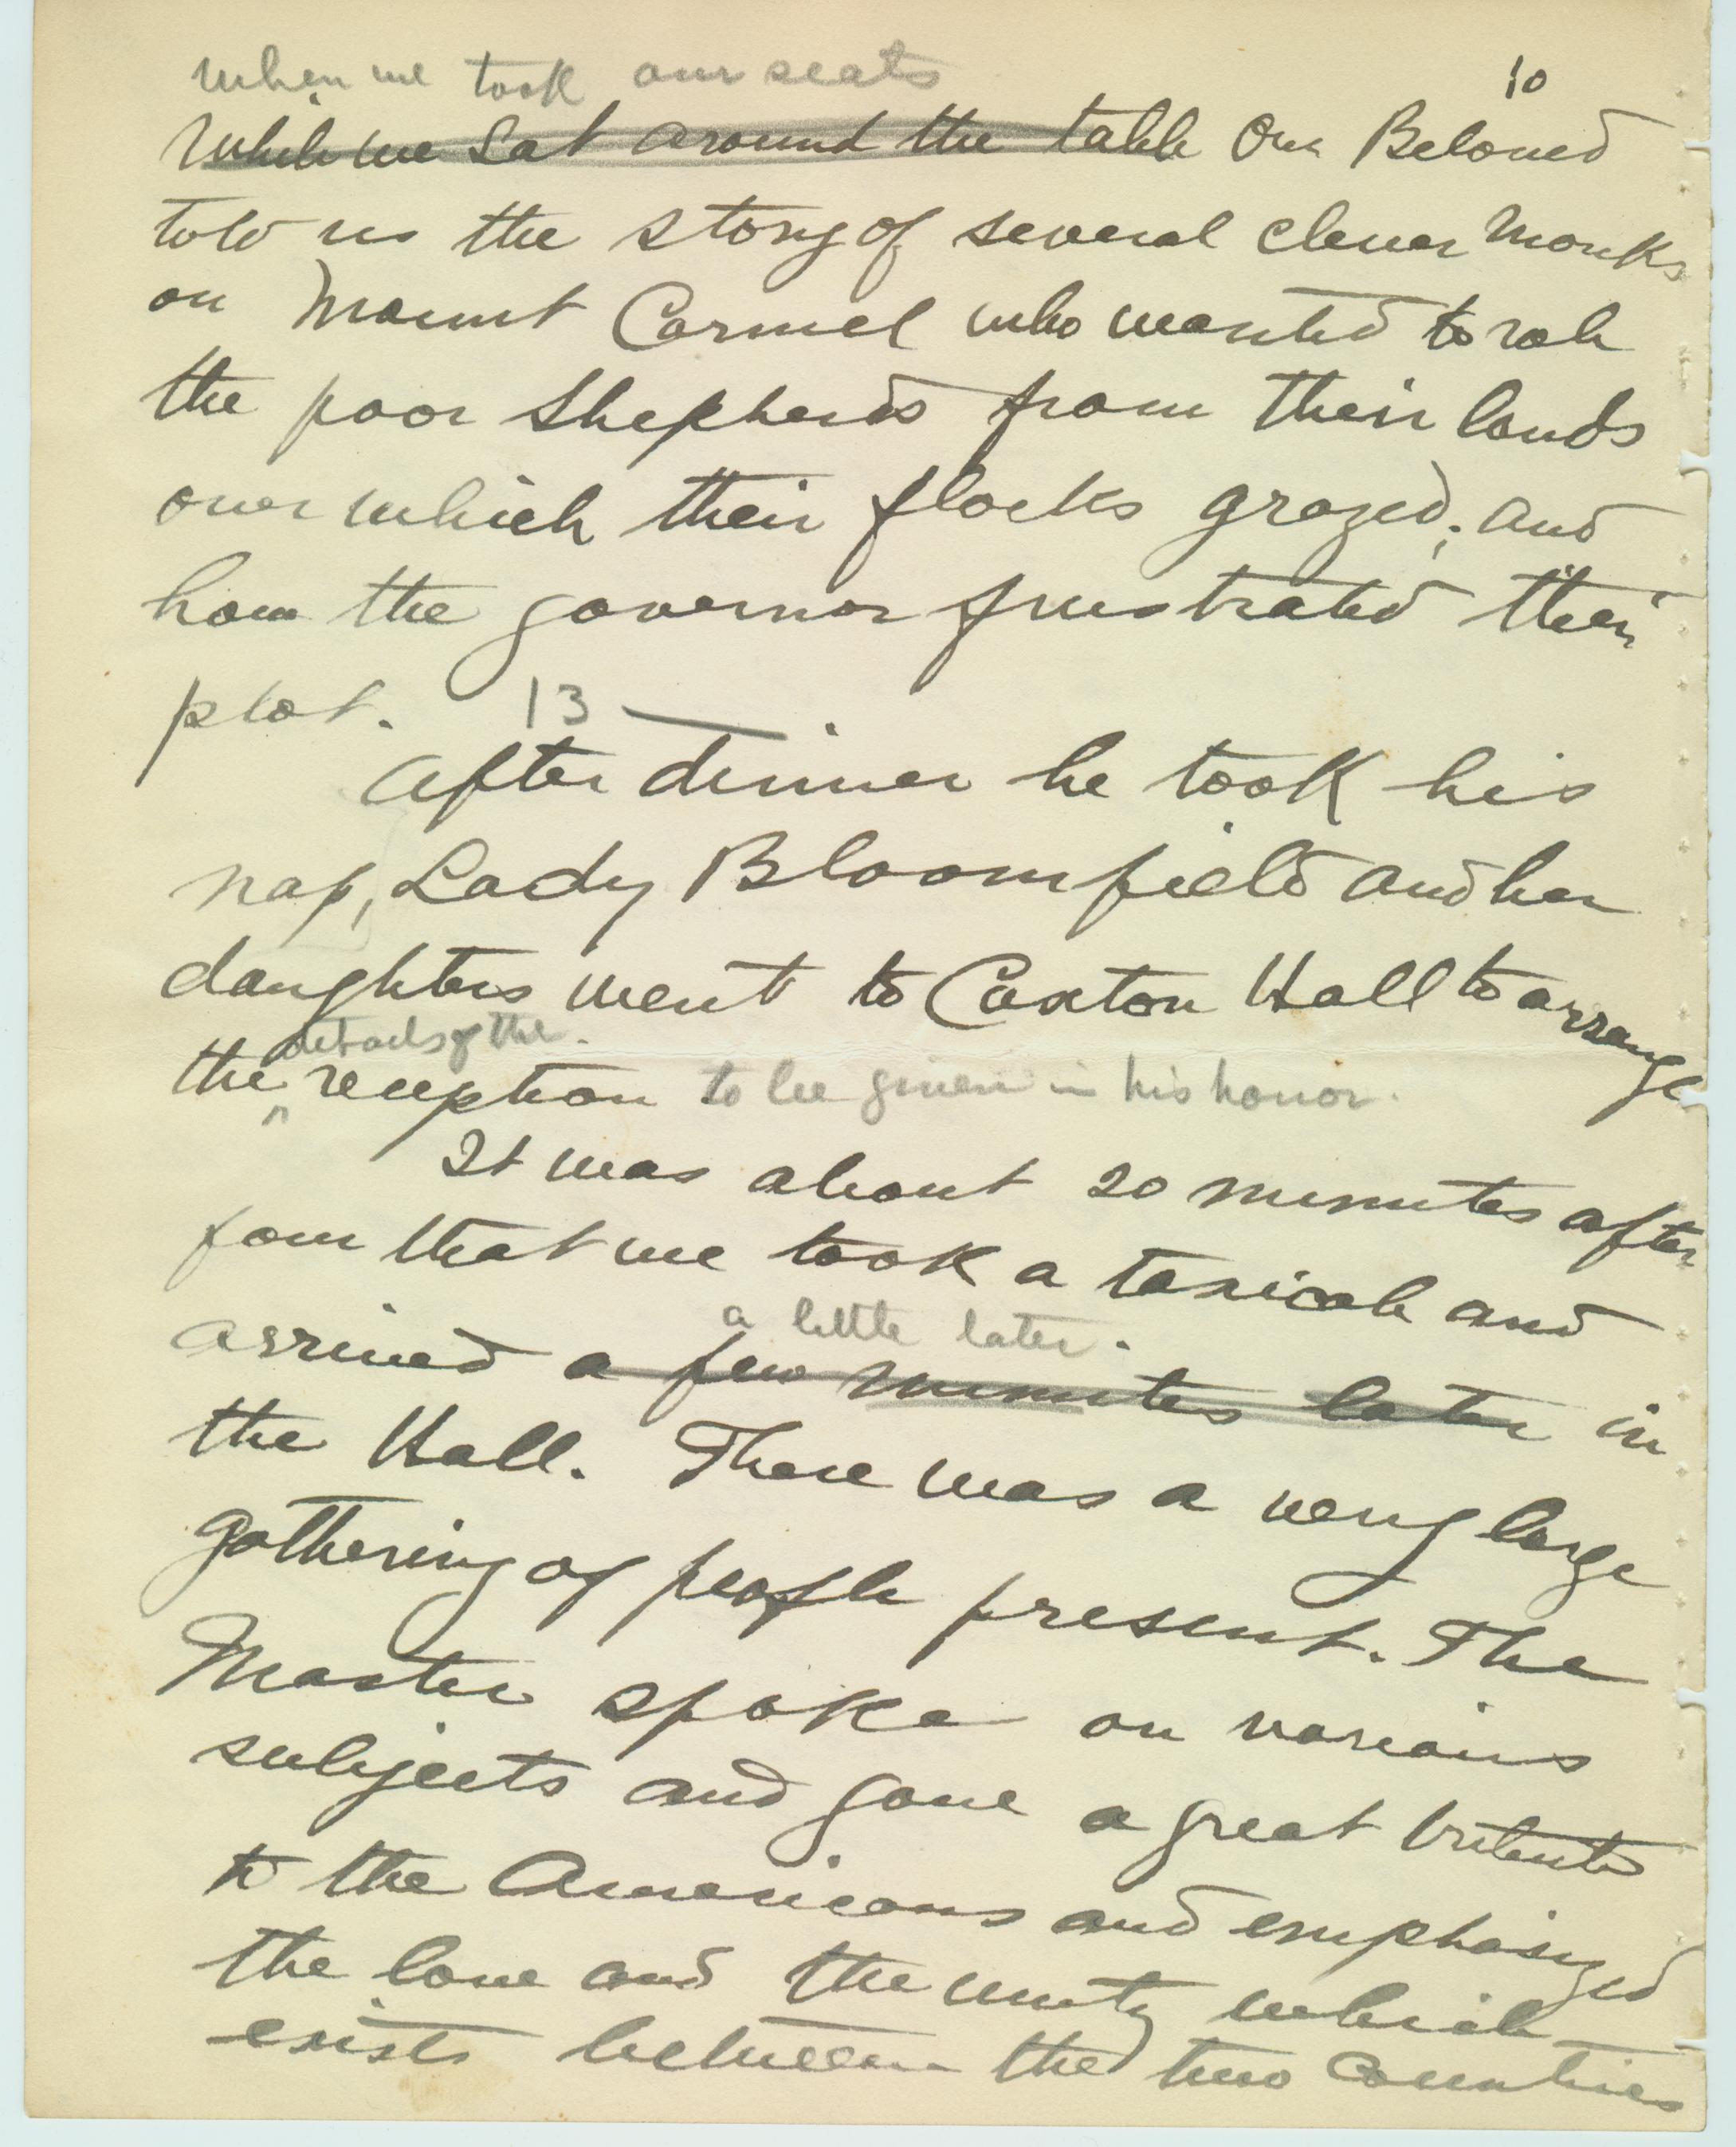 10
when we took our seats
While we sat around the table Our Beloved
told us the story of several clever monks
on Mount Carmel who wanted to rob
the poor Shepherds from their lands
over which their flocks grazed; and
how the governor frustrated their
plot. 13 —
After dinner he took his
nap, Lady Bloomfield and her
daughters went to Caxton Hall to arrange
details of the
the reception to be given in his honor.
It was about 20 minutes after
four that we took a taxicab and
a little later.
arrived a few minutes later in
the Hall. There was a very large
gathering of people present. The
Master spoke on various
subjects and gave a great
to the Americans and emphasized
the love and the unity which
exists between the two countries